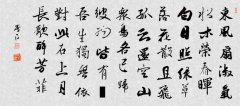 東風扇淑氣
水木榮春暉
白日照綠草
落花散且飛
孤雲還空山
衆鳥各已歸
彼物皆有
吾生獨無依
對此石上月
長歌醉芳菲